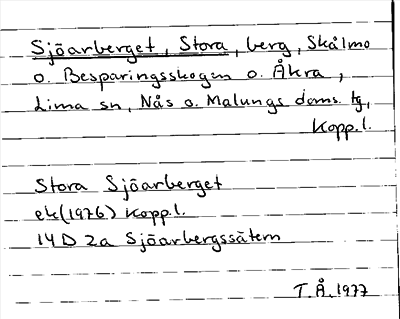 Sjöarberget, Stora, berg, Skålmo
o. Besparingsskogen o. Åkra,
Lima sn, Nås o. Malungs doms. tg,
Kopp.l.
Stora Sjöarberget
ek(1976) Kopp.l.
14D 2a Sjöarbergssätern
T.Å. 1977